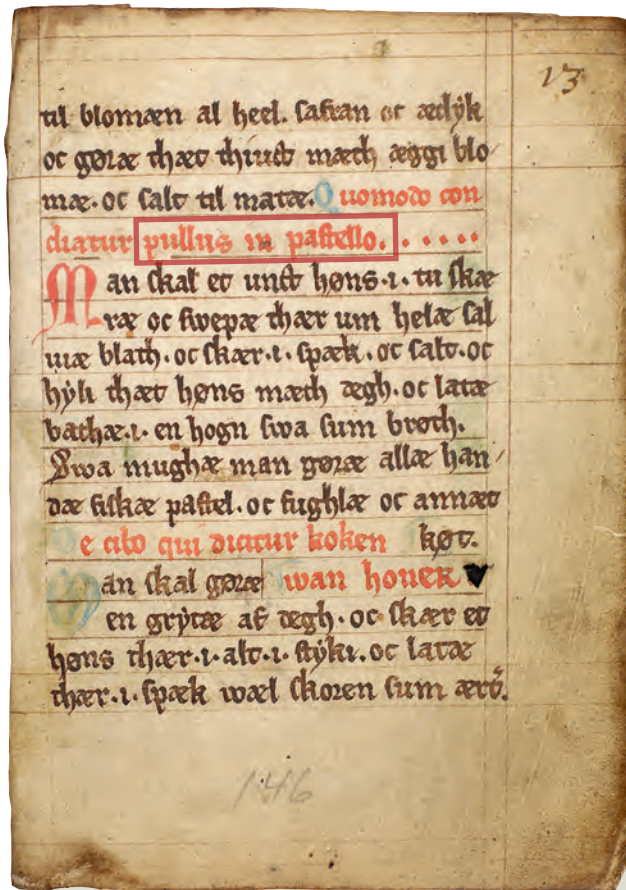 13
til blomæn al heel. safran oc ædyk
oc gøræ thæt thiust mæth æggi blo
mæ. oc salt til matæ. Quomodo con
diatur pullus in pastello. . . . . .
Man skal et unst høns .i. tu skæ
ræ oc swepæ thær um helæ sal
uiæ blath. oc skær .i. spæk. oc salt. oc
hyli thæt høns mæth degh. oc latæ
bathæ .i. en hogn swa sum brøth.
Swa mughæ man gøræ allæ han
dæ fiskæ pastel. oc fughlæ oc annæt
De cibo qui dicitur koken køt.
Man skal gøræ wan honer
en grytæ af degh. oc skær et
høns thær .i. alt .i. styki. oc latæ
thær .i. spæk wæl skoren sum ært.
146